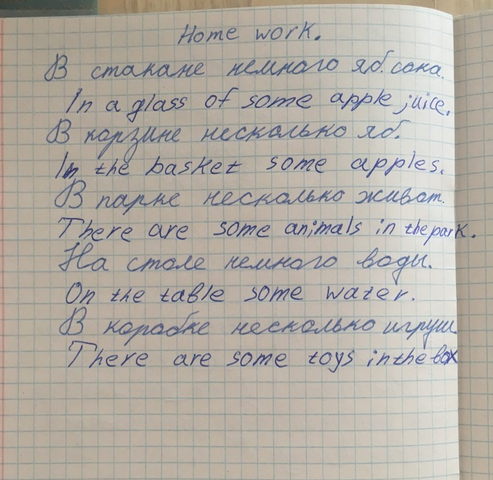 Home work.
В стакане немного яб. сока.
In a glass of some apple juice.
В корзине несколько яб.
In the basket some apples.
В парке несколько живот.
There are some animals in the park.
На столе немного воды.
On the table some water.
В коробке несколько игруш
There are some toys in the box